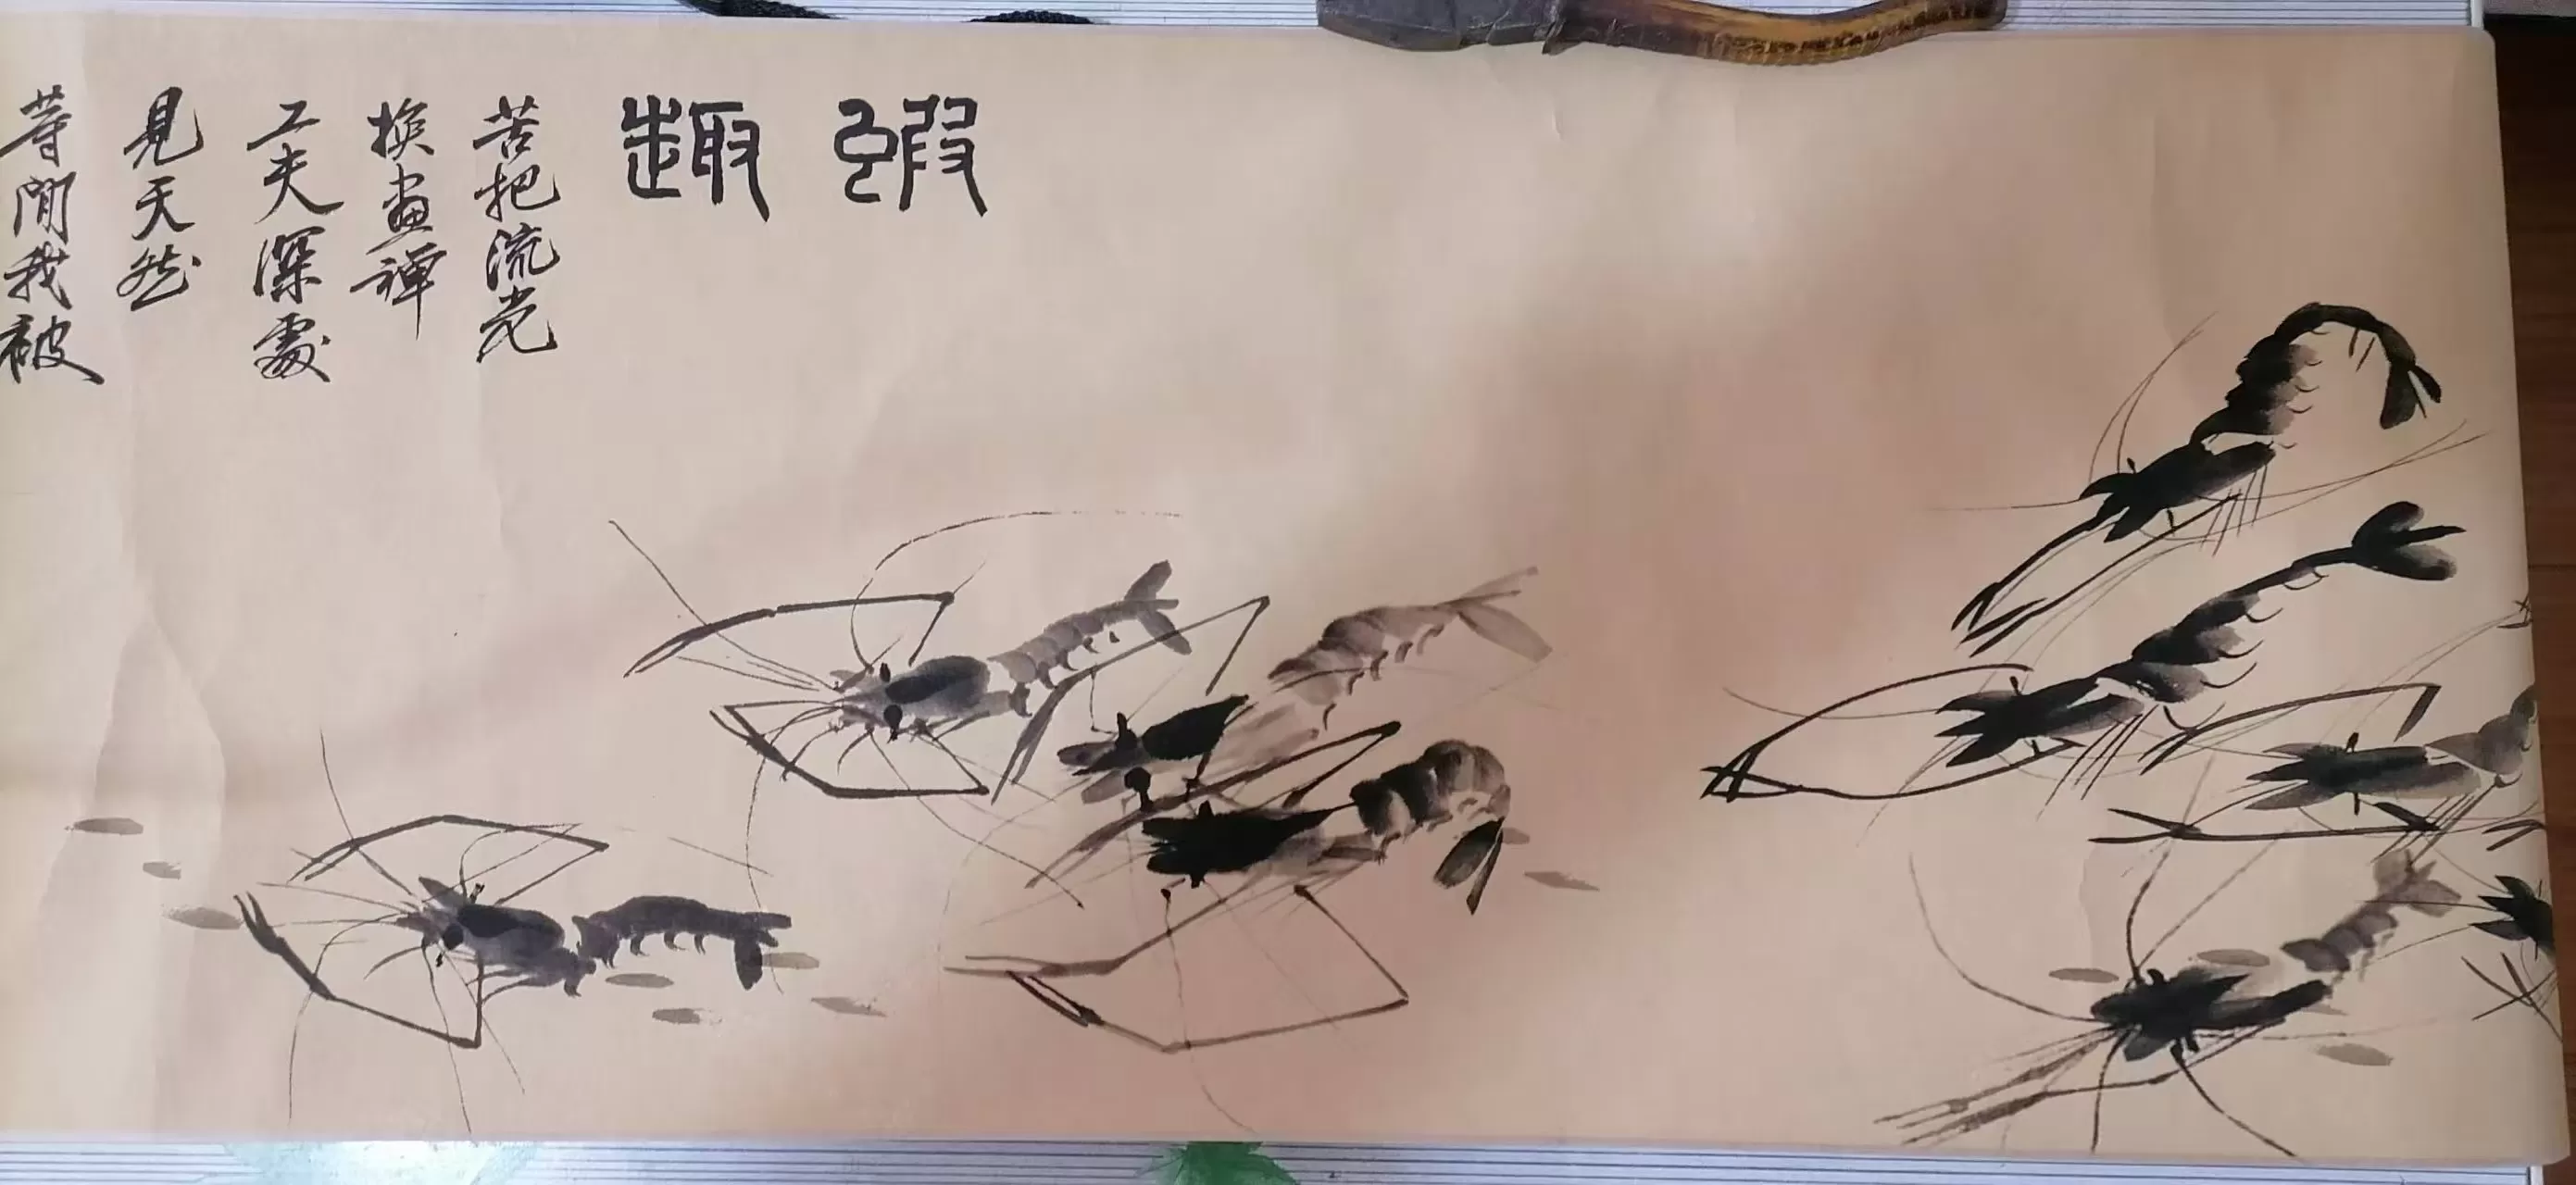 蝦趣
苦把流光
換畫禪
工夫深處
見天然
等閒我被